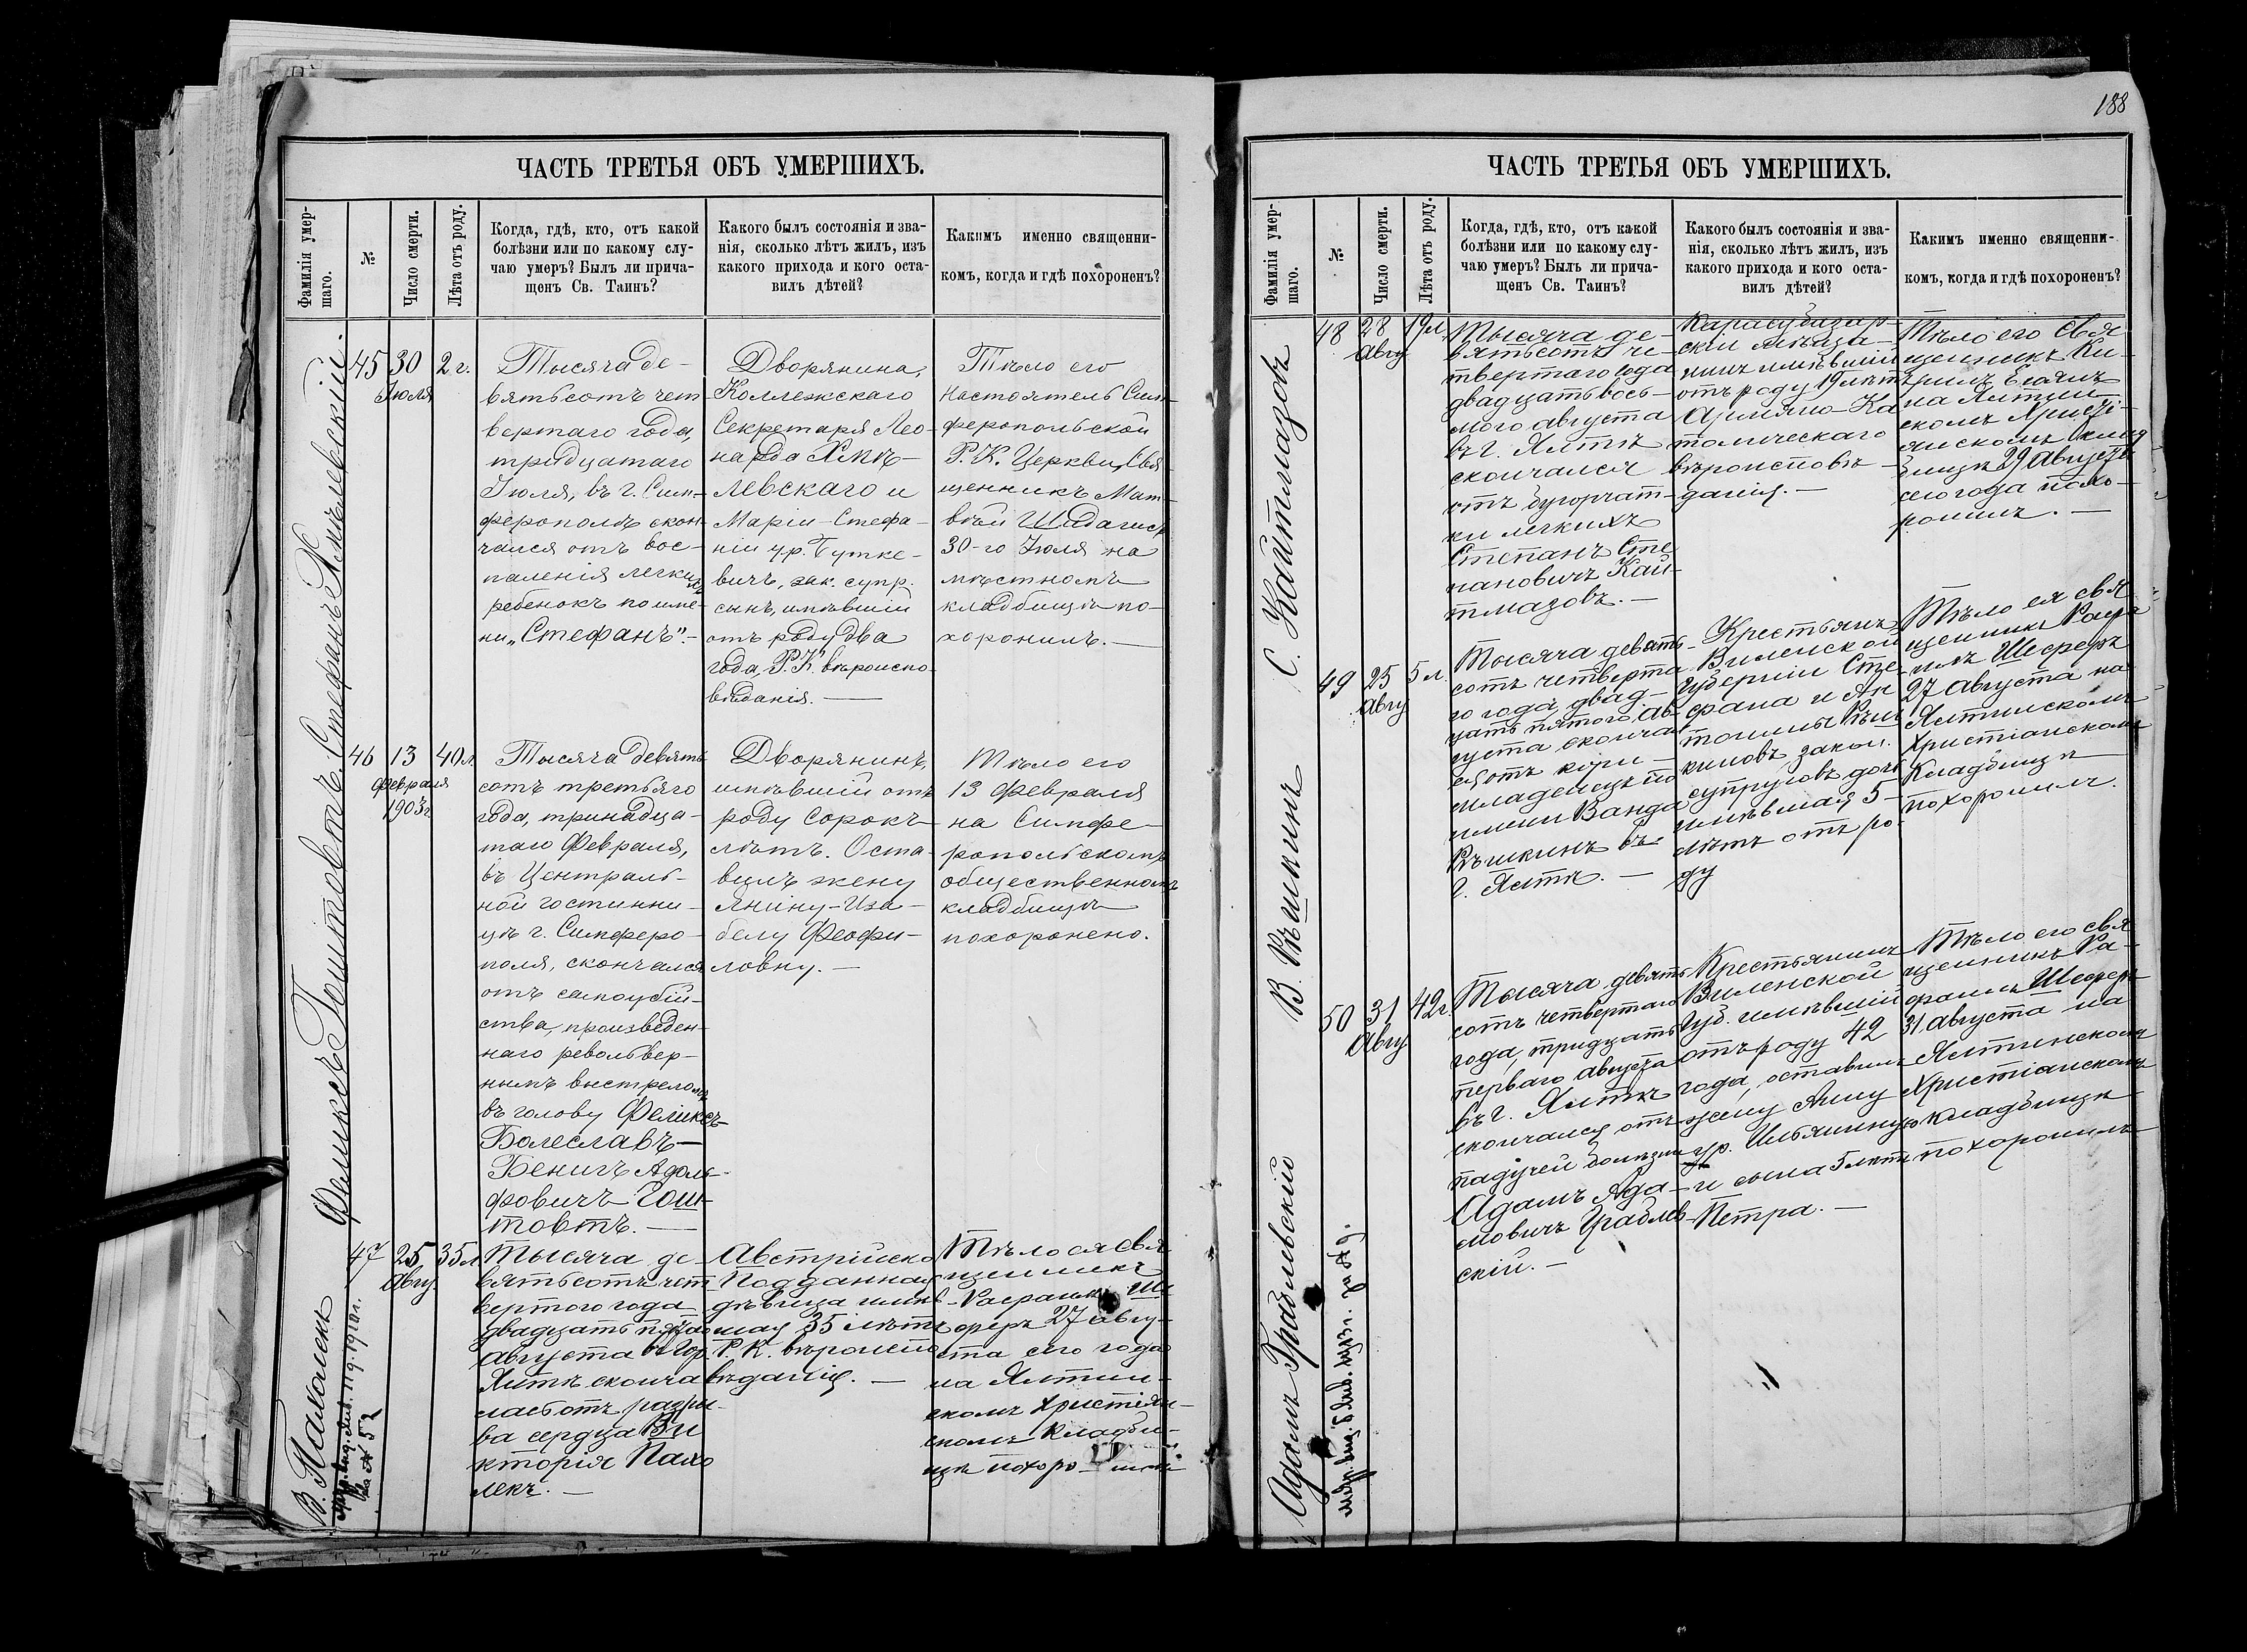 ЧАСТЬ ТРЕТЬЯ ОБЪ УМЕРШИХЪ.
Фамилія умер-
шаго.
№
Число смерти.
Лѣта отъ роду.
Когда, гдѣ, кто, отъ какой
болѣзни или по какому слу-
чаю умеръ? Былъ ли прича-
щенъ Св. Таинъ?
Какого былъ состоянія и зва-
нія, сколько лѣтъ жилъ, изъ
какого прихода и кого оста-
вилъ дѣтей?
Какимъ именно священни-
комъ, когда и гдѣ похороненъ?
Стефанъ Хмѣлевскій.
45
30
Іюля
2 г.
Тысяча де-
вятьсотъ чет-
вертаго года,
тридцатаго
Іюля, въ г. Сим-
ферополѣ скон-
чался отъ вос-
паленія легкихъ
ребенокъ по име-
ни „Стефанъ".-
Дворянина,
Коллежскаго
Секретаря Лео-
нарда Хмѣ-
левскаго и
Маріи-Стефа-
ніи ур. Бутке-
вичъ, зак. супр.
сынъ, имѣвшій
отъ роду два
года, Р.К. вѣроиспо-
вѣданія. —
Тѣло его
Настоятель Сим-
феропольской
Р.К. Церкви, Свя-
щенникъ Мат-
вѣй
30-го Іюля на
мѣстномъ
кладбищѣ по-
хоронилъ. —
Феликсъ Гоштовтъ
46
13
Февраля
1903 г.
40 л.
Тысяча девять-
сотъ третьяго
года, тринадца-
таго Февраля,
въ Централь-
ной гостинни-
цѣ г. Симферо-
поля, скончался
отъ самоубій-
ства, произведен-
наго револьвер-
нымъ выстреломъ
въ голову Феликсъ-
Болеславъ-
Бенигъ Адоль-
фовичъ Гош-
товтъ. —
Дворянинъ,
имѣвшій отъ
роду Сорокъ
лѣтъ. Оста-
вилъ жену
Янину-Иза-
белу Феофи-
ловну. —
Тѣло его
13 Февраля
на Симфе-
ропольскомъ
общественномъ
кладбищѣ
похоронено.
В. Пахолекъ
47
25
Авгу.
35 л.
Тысяча де-
вятьсотъ чет-
вертого года
двадцать пятаго
Августа въ гор.
Ялтѣ сконча-
лась отъ разры-
ва сердца Ви
кторія Пахо
лекъ. —
Австрійско
Подданная
дѣвица имѣв-
шая 35 лѣтъ
Р. К. вѣроиспо
вѣданія. —
Тѣло ея свя
щенникъ
Рафаилъ Ше
феръ 27 авгу-
ста сего года
на Ялтин-
скомъ Христіан-
скомъ кладби-
щѣ похоронилъ
188
ЧАСТЬ ТРЕТЬЯ ОБЪ УМЕРШИХЪ.
Фамилія умер-
шаго.
№
Число смерти.
Лѣта отъ роду.
Когда, гдѣ, кто, отъ какой
болѣзни или по какому слу-
чаю умеръ? Былъ ли прича-
щенъ Св. Таинъ?
Какого былъ состоянія и зва-
нія, сколько лѣтъ жилъ, изъ
какого прихода и кого оста-
вилъ дѣтей?
Какимъ именно священни-
комъ, когда и гдѣ похороненъ?
С. Кайтмазовъ
48
28
Авгу
19 л.
Тысяча де-
вятьсотъ че-
твертаго года
двадцать вось-
мого августа
въ г. Ялтѣ
скончался
отъ бугорчат-
ки легкихъ
Степанъ Сте
пановичъ Кай-
тмазовъ. —
Карасубазар-
скій мѣща-
нинъ имѣвшій
отъ роду 19 лѣтъ
Армяно-Ка
толическаго
вѣроисповѣ-
данія. —
Тѣло его Свя
щенникъ
на Ялтин-
скомъ Христі-
анскомъ клад
бищѣ 29 Августа
сего года похо-
ронилъ. —
В. Рѣшкинъ
49
25
Авгу
5 л.
Тысяча девять-
сотъ четверта
го года, двад-
цать пятого ав-
густа сконча
ся отъ кори-
младенецъ по
имени Ванда
Рѣшкинъ въ
г. Ялтѣ. —
Крестьянъ
Виленской
Губерніи Сте-
фана и Ан
тонины Рѣш
киновъ закон.
супруговъ дочь
имѣвшая 5-
лѣтъ отъ ро-
ду
Тѣло ея свя
щенникъ Рафа
илъ Шеферъ
27 августа на
Ялтинскомъ
Христіанскомъ
Кладбищѣ
похоронилъ.
Адамъ Граблевскій
50
31
Авгу
42 г.
Тысяча девять
сотъ четвертаго
года, тридцать
перваго августа
въ г. Ялтѣ
скончался отъ
падучей болѣзни
Адамъ Ада-
мовичъ Граблев-
скій. —
Крестьянинъ
Виленской
Губ. имѣвшій
отъ роду 42
года, оставилъ
жену Анну
ур. Ильянину
и сына 5 лѣтъ
Петра. —
Тѣло его свя
щенникъ Ра-
фаилъ Шеферъ
31 августа на
Ялтинскомъ
Христіанскомъ
кладбищѣ
похоронилъ